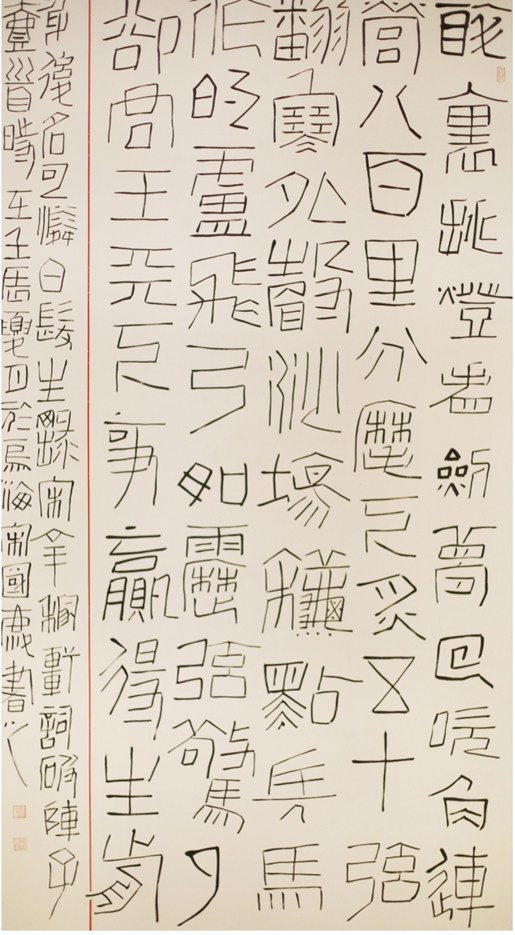 醉裏挑燈看劍夢回吹角連
營八百里分麾下炙五十弦
翻塞外聲沙場秋點兵馬
作的盧飛弓如靂弦驚了
卻君王天下事贏得生前
身後名可憐白髮生錄宋辛稼軒詞破陣子
壹首時在壬馬夏於烏海宋國書